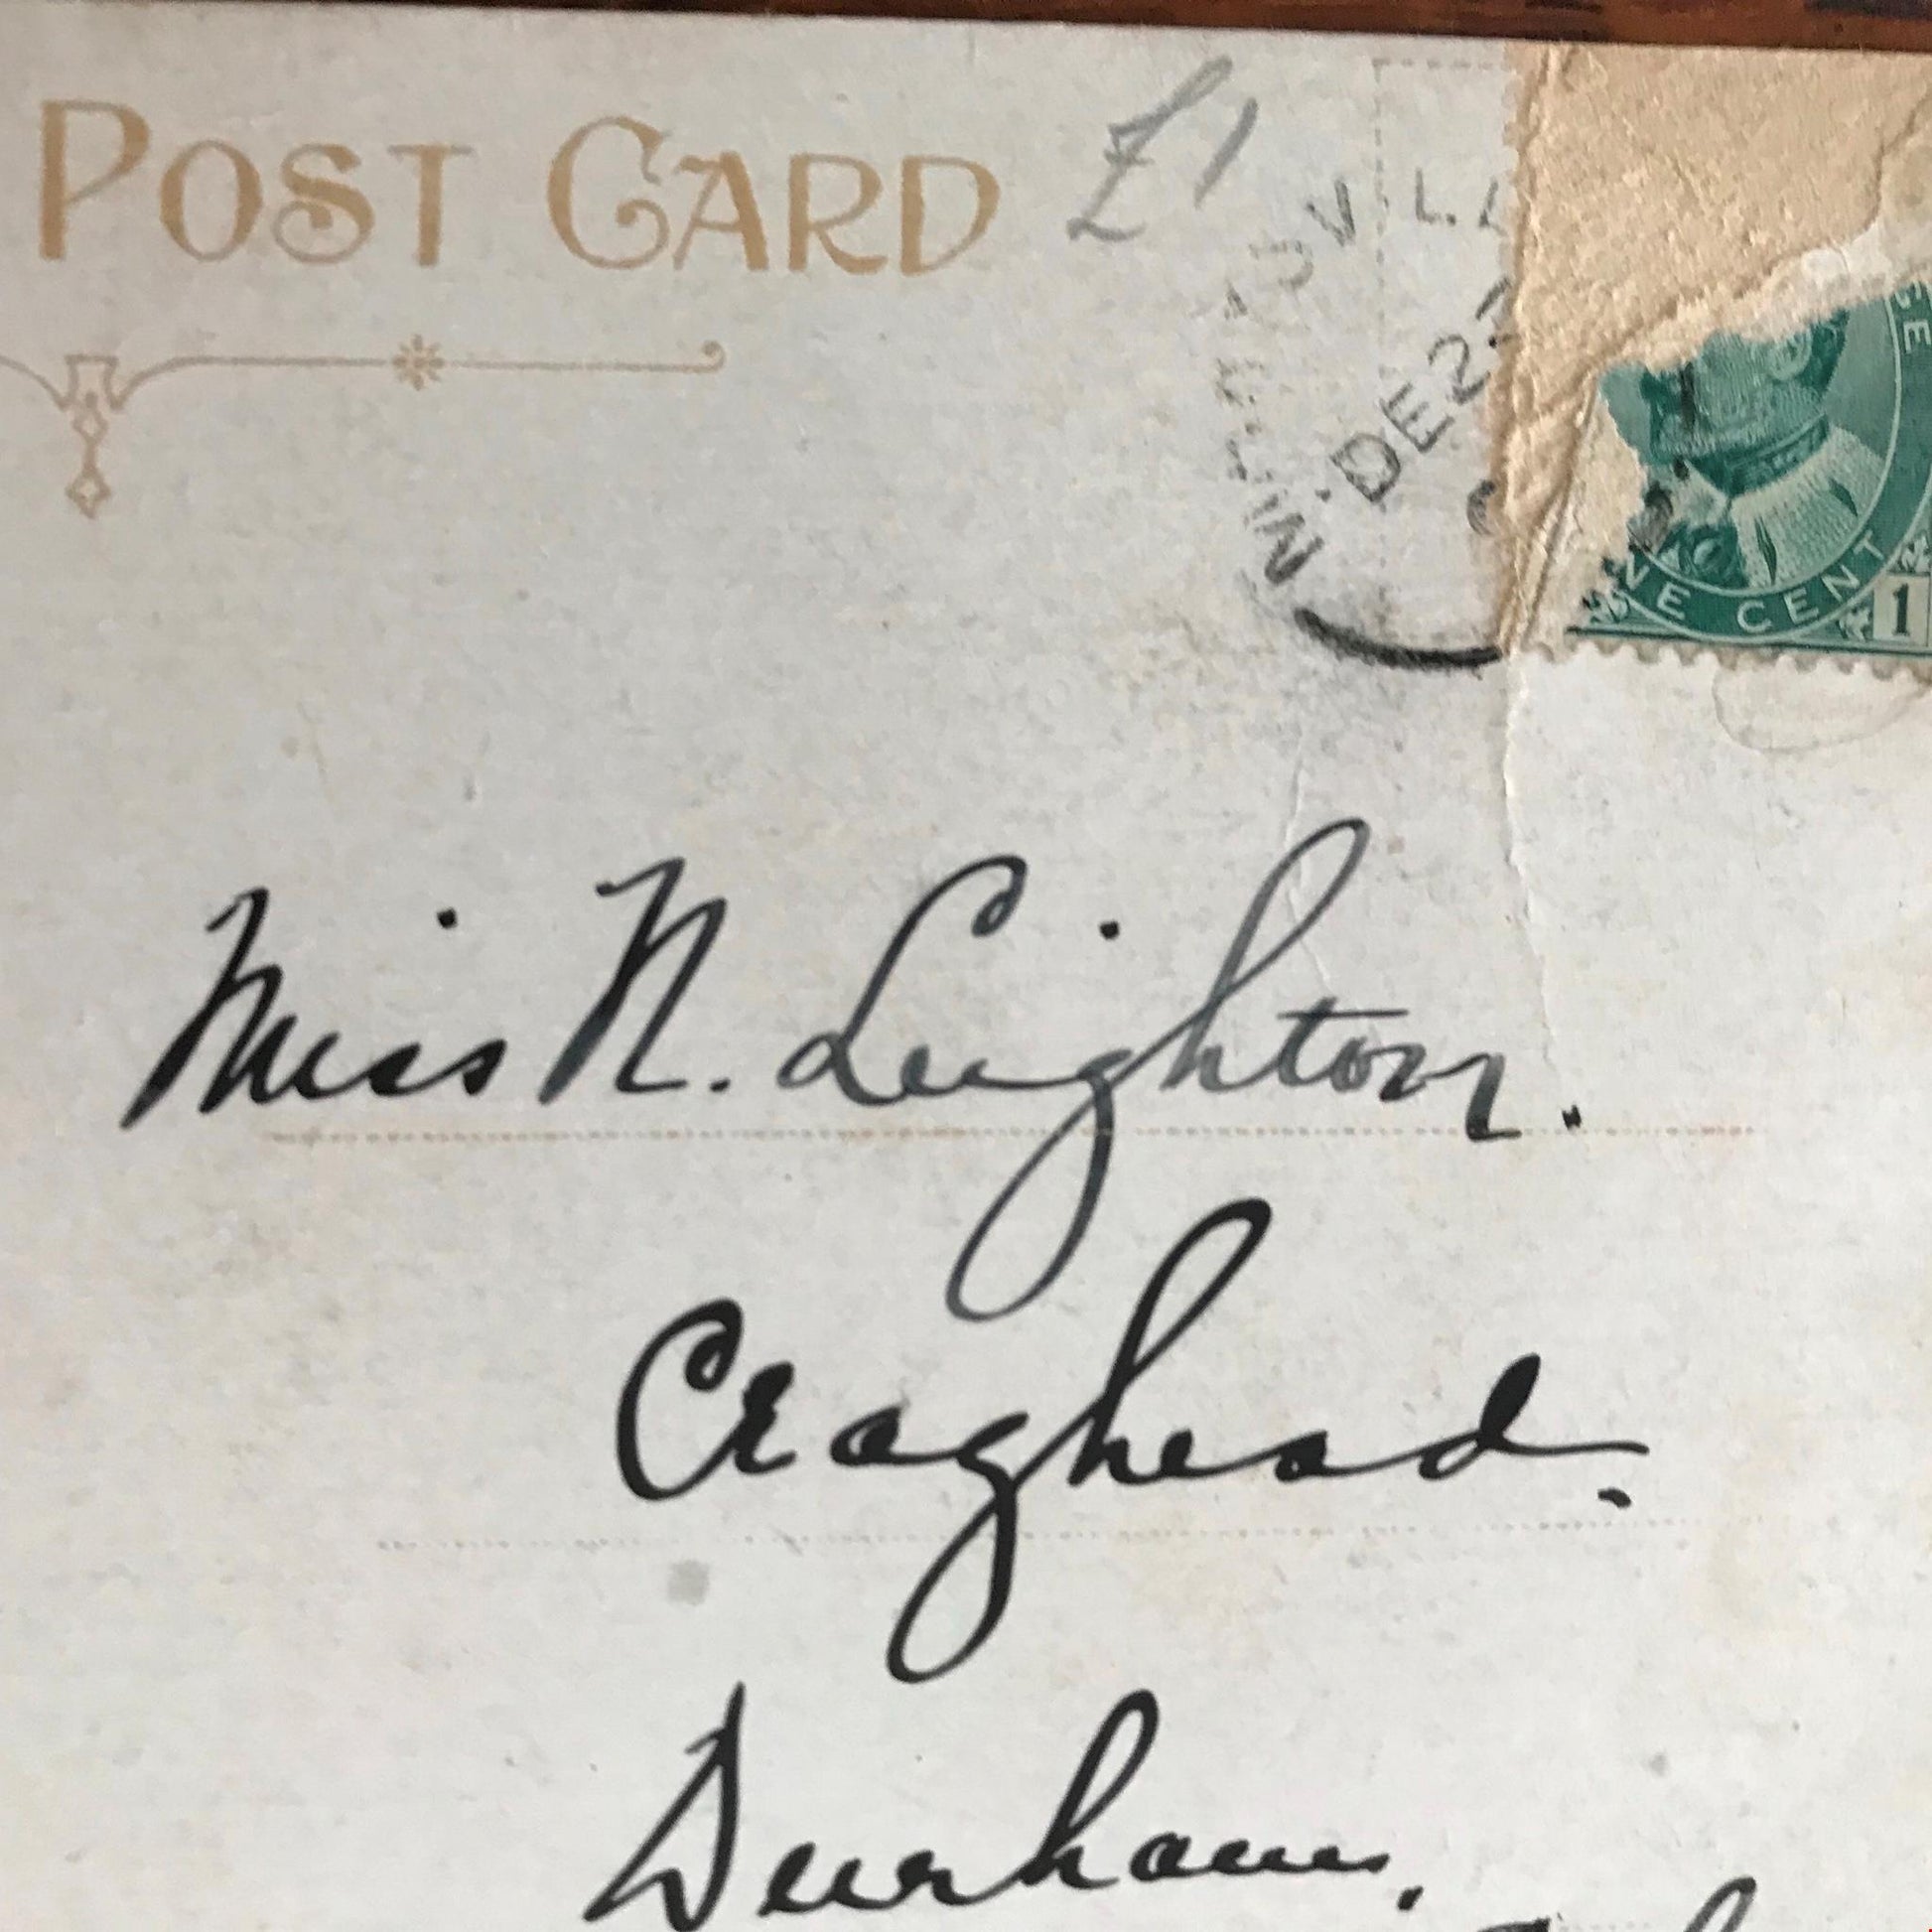 POST CARD
£1
DE 2
GE
NE CENT
1
Miss N. Leighton.
Craghead.
Durham.